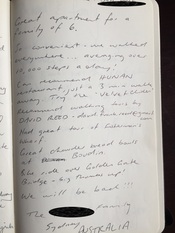 Great apartment for a
family of 6.
So convenient - we walked
everywhere ... averaging over
10,000 steps a day!
Can recommend HUNAN
restaurant, just a 3 min walk
away. Try the
Recommend walking tours by
DAVID REED -
Had great tour of
Great chowder bread bowls
at Boudin
Bike ride over Golden Gate
Bridge - big
We will be back!!!
The family
Sydney
AUSTRALIA